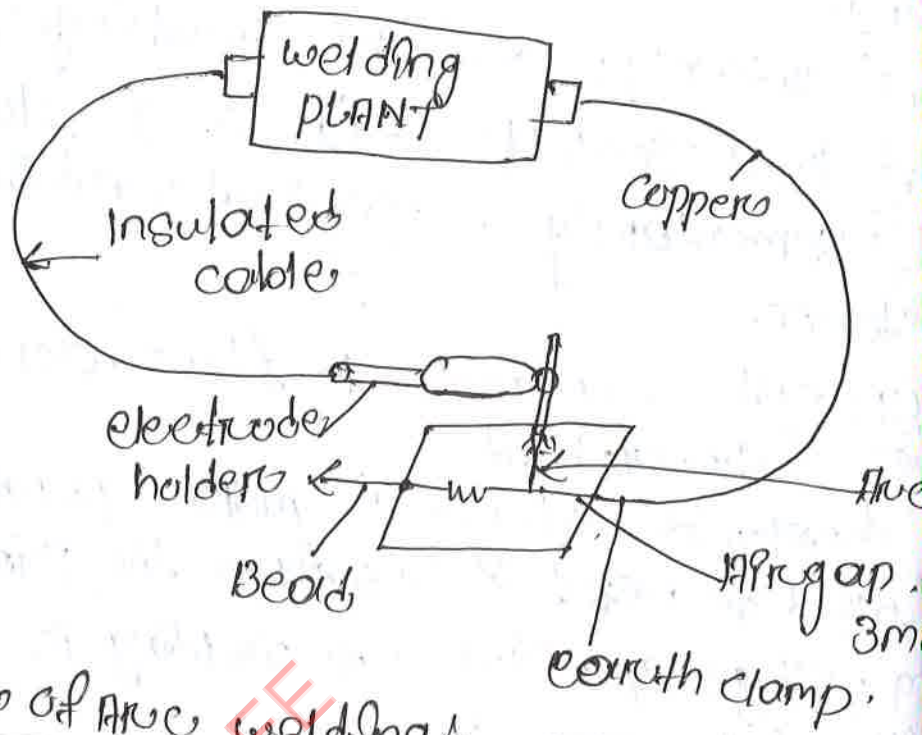 welding
PLANT
Coppers
Insulated
cable
electrode
holders
Arc
Bead
Air gap.
3m
earth clamp.
of Arc welding